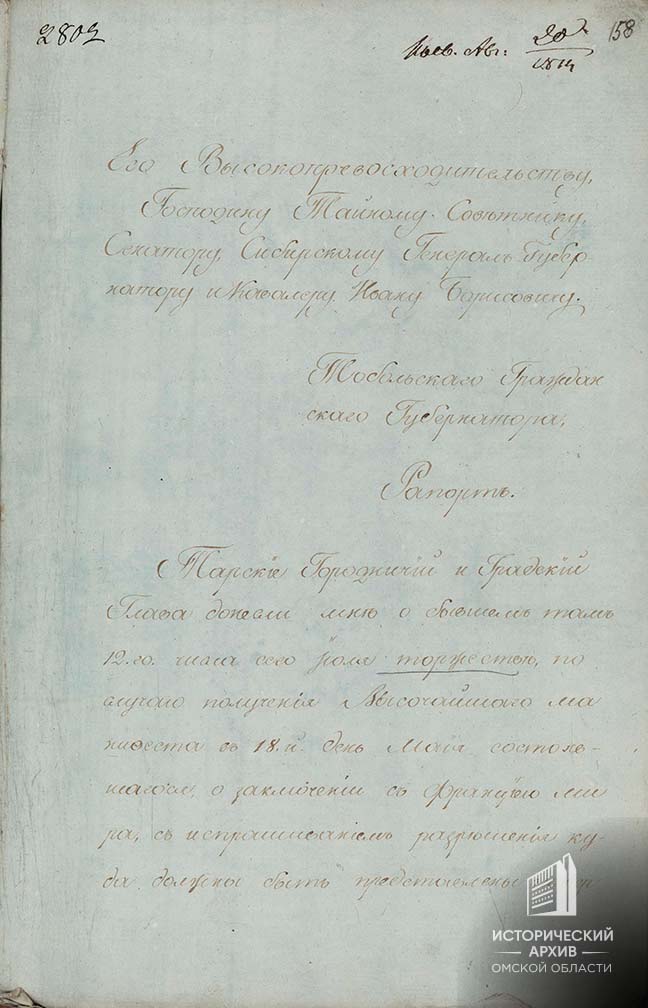 2802
158
Авг: 20
1814
Его Высокопревосходительству,
Господину Тайному Совѣтнику,
Сенатору, Сибирскому Генералъ-Губер
натору и Кавалеру, Ивану Борисовичу.
Тобольскаго Граждан
скаго Губернатора,
Рапортъ.
Тарскіе Городничій и Градскій
Глава донесли мнѣ о бывшемъ тамъ
12.го. числа сего Іюля торжествѣ, по
случаю полученія Высочайшаго ма
нифеста въ 18.й. день Маія состояв-
шагося, о заключеніи съ Франціею ми
ра, съ испрашиваніемъ разрѣшенія ку-
да должны быть представлены
ИСТОРИЧЕСКИЙ
АРХИВ
ОМСКОЙ ОБЛАСТИ